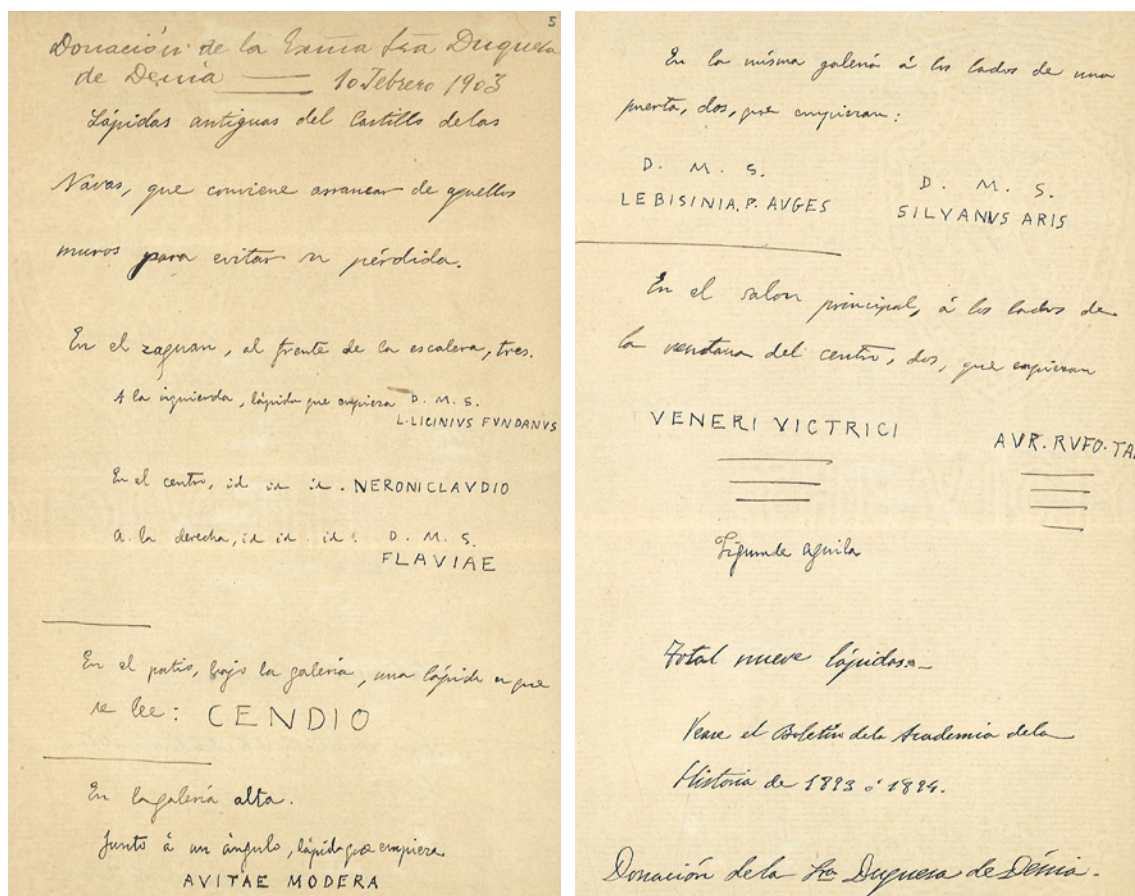 5
Donación de la Exma Sra Duquesa
de Denia — 10 Febrero 1903
Lápidas antiguas del Castillo de las
Navas, que conviene arrancar de aquellos
muros para evitar su pérdida.
En el zaguan, al frente de la escalera, tres.
A la izquierda, lápida que empieza D. M. S.
L. LICINIVS FVNDANVS
En el centro, id id id. NERONICLAVDIO
A la derecha, id id. id. D. M. S.
FLAVIAE
En el patio, bajo la galería, una lápida en que
se lee: CENDIO
En la galería alta.
Junto á un ángulo, lápida que empieza
AVITAE MODERA
En la misma galería á los lados de una
puerta, dos, que empiezan:
D. M. S.
LEBISINIA. P. AVGES
D. M. S.
SILVANVS ARIS
En el salon principal, á los lados de
la ventana del centro, dos, que empiezan
VENERI VICTRICI
AVR. RVFO. TA
Figura de aguila
Total nueve lápidas.—
Vease el Boletín de la Academia de la
Historia de 1893 ó 1894.
Donación de la Sra Duquesa de Dénia.